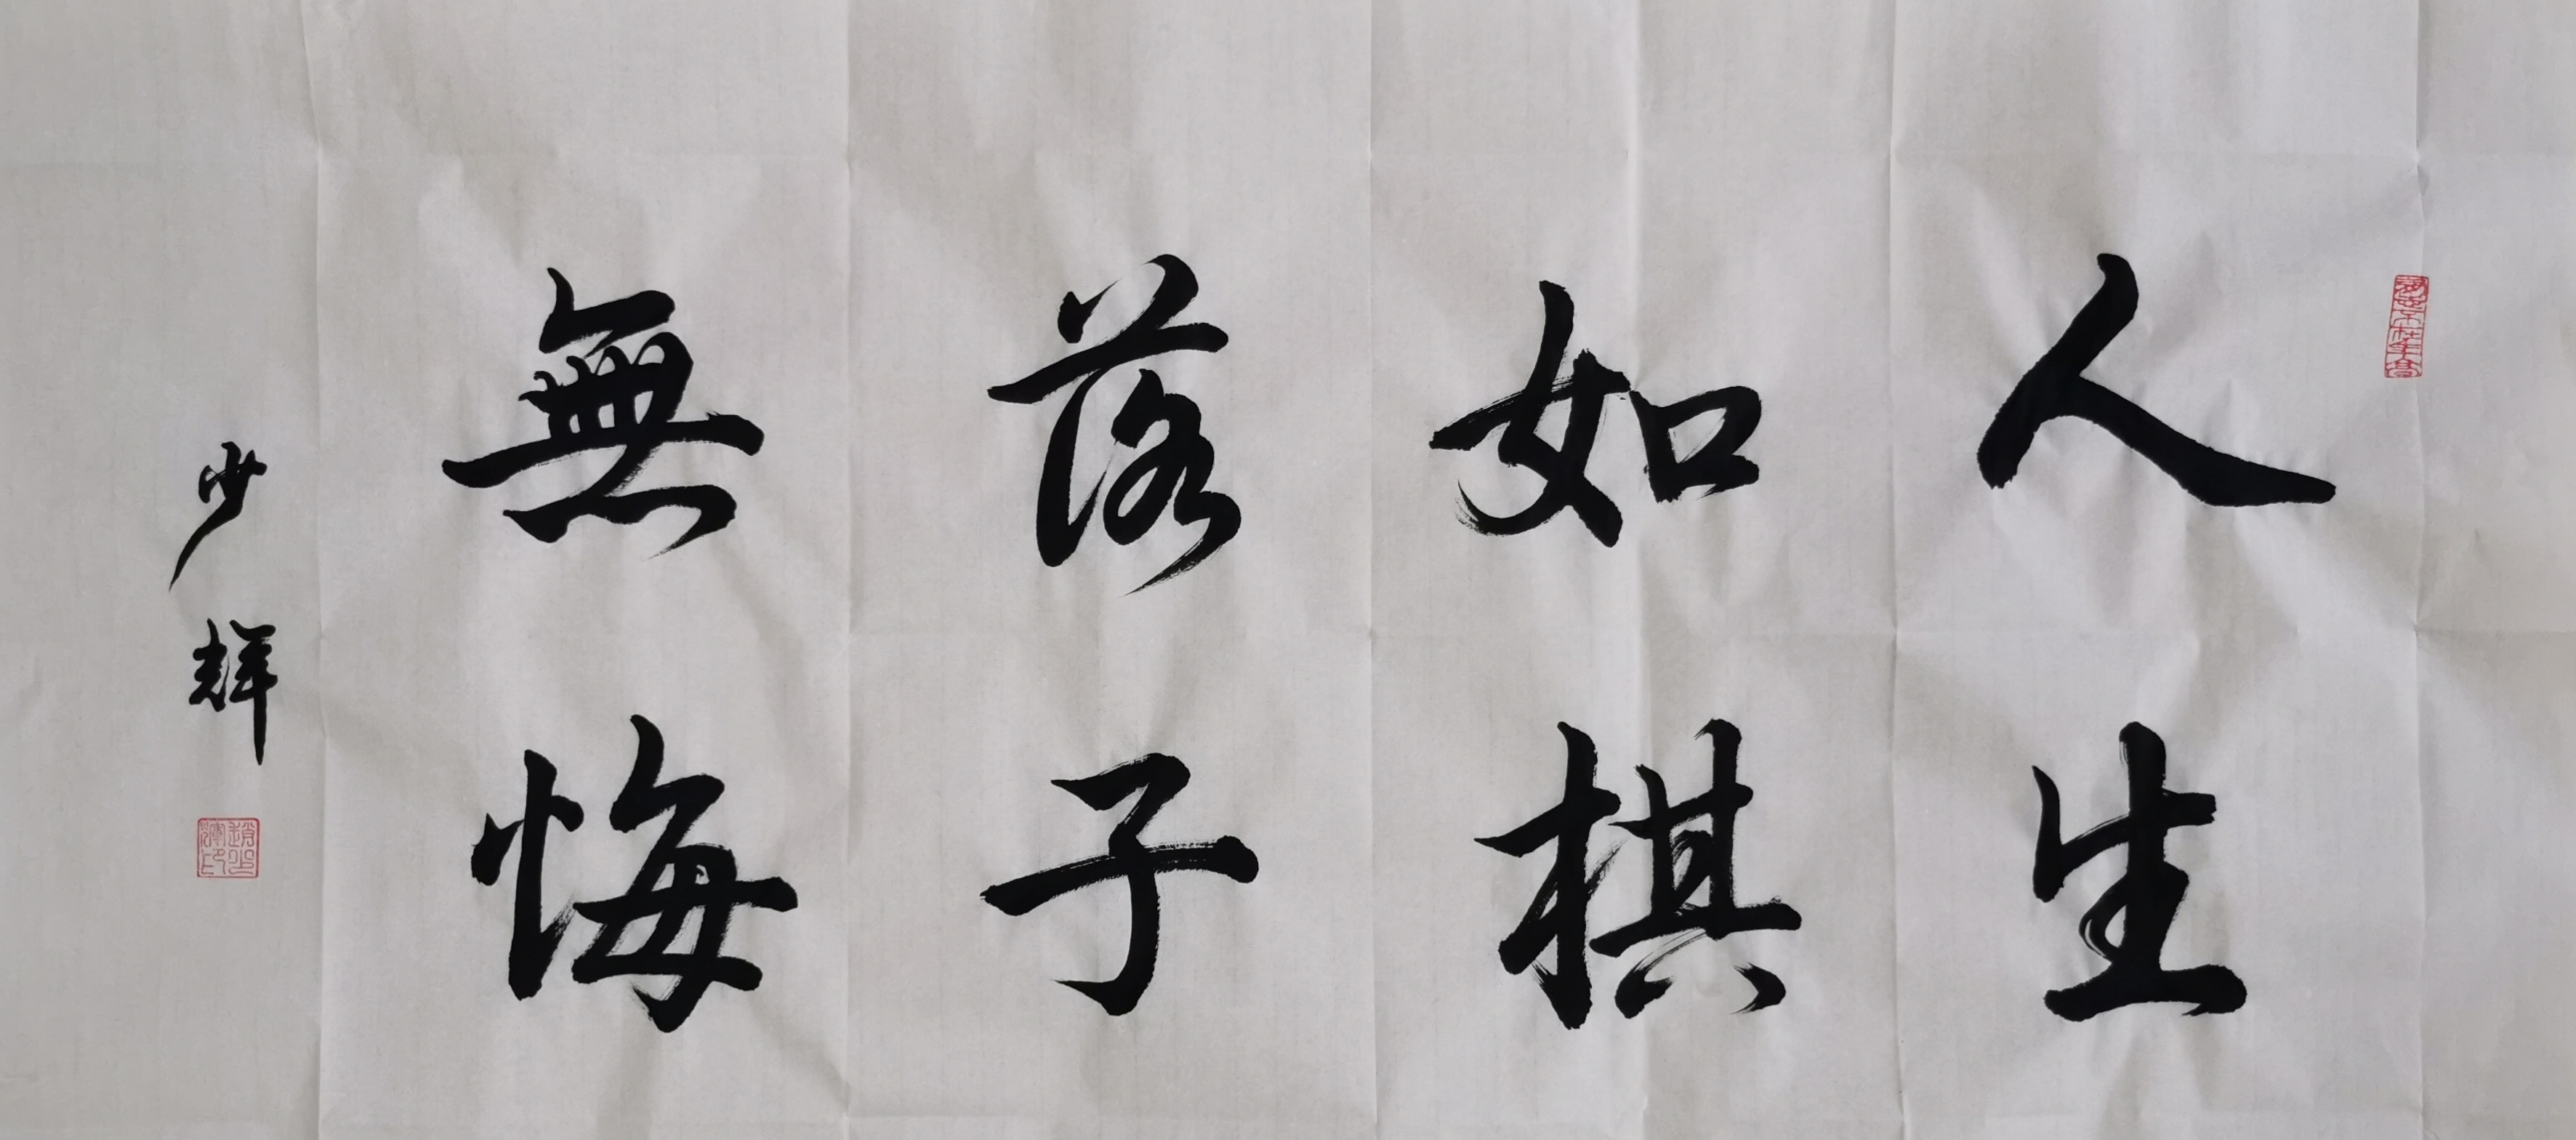 人生
如棋
落子
無悔
少輝